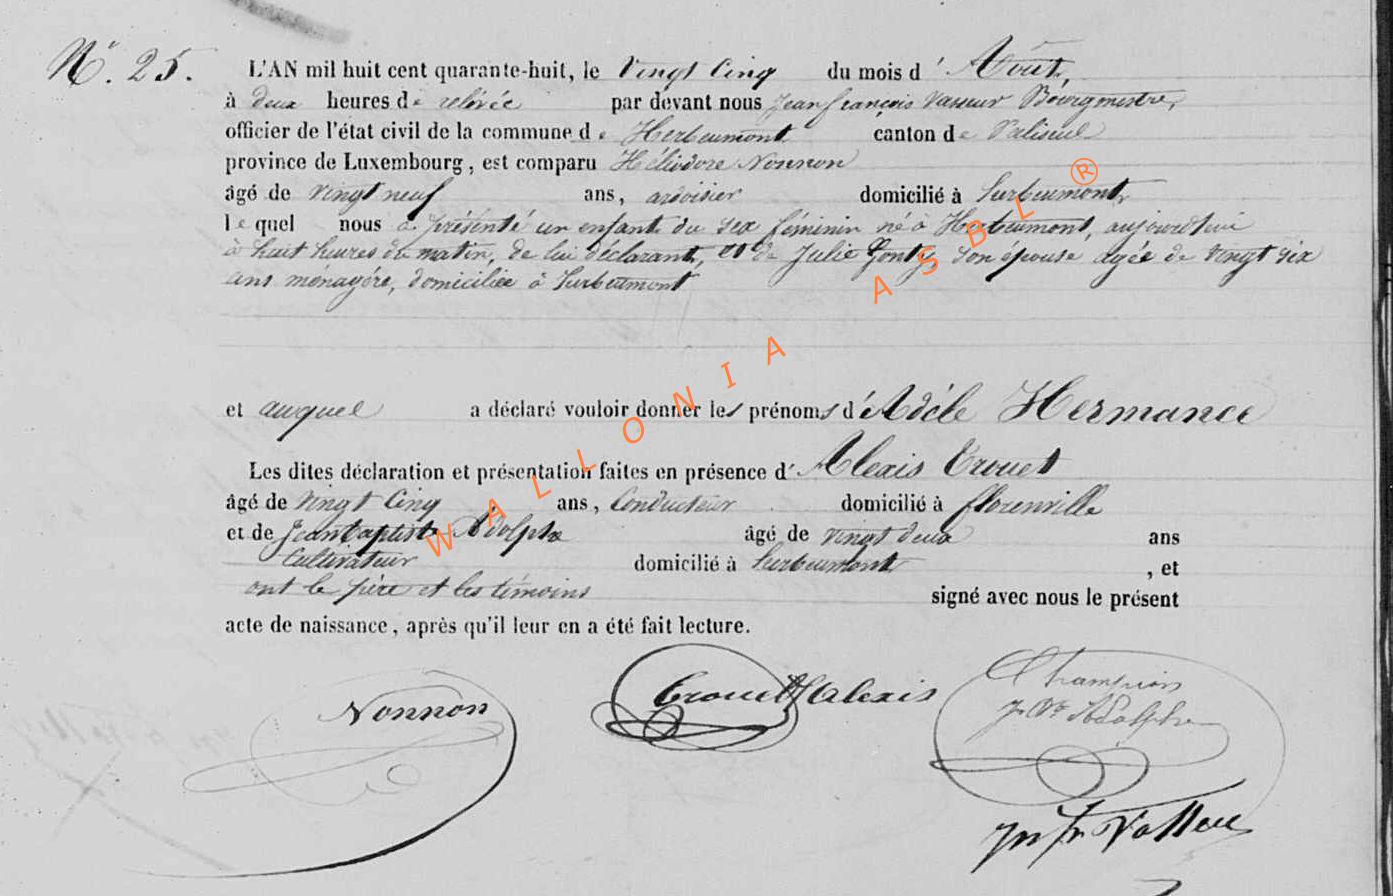 N° 25.
L'AN mil huit cent quarante-huit, le Vingt Cinq du mois d' Août,
à deux heures de relevée par devant nous Jean françois Vasseur Bourgmestre,
officier de l'état civil de la commune de Herbeumont canton de Paliseul
province de Luxembourg, est comparu Héliodore Nonnon
âgé de vingt neuf ans, ardoisier domicilié à Herbeumont,
lequel nous a présenté un enfant du sex féminin né à Herbeumont, aujourd'hui
à huit heures du matin, de lui déclarant, et de Julie Gonty son épouse agée de vingt six
ans ménagére, domiciliée à Herbeumont
et auquel a déclaré vouloir donner les prénoms d'Adèle Hermance
Les dites déclaration et présentation faites en présence d' Alexis Crouet
âgé de vingt Cinq ans, Conducteur domicilié à florenville
et de Jean baptiste Adolphe âgé de vingt deux ans
Cultivateur domicilié à Herbeumont, et
ont le père et les témoins signé avec nous le présent
acte de naissance, après qu'il leur en a été fait lecture.
Nonnon Crouet Alexis Champion
J. Bte Adolphe
Jn fr Vasseur
WALLONIA ASBL ®